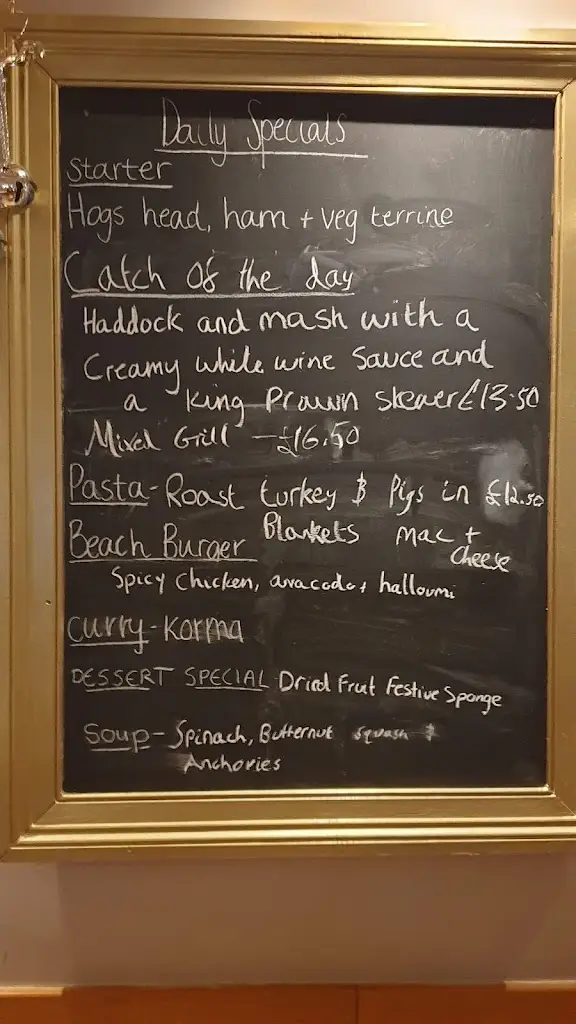 Daily Specials
Starter
Hogs head, ham + veg terrine
Catch of the day
Haddock and mash with a
Creamy white wine sauce and
a King Prawn skewer £13.50
Mixed Grill - £16.50
Pasta - Roast turkey & Pigs in £12.50
Blankets Mac +
Cheese
Beach Burger
Spicy Chicken, avacado + halloumi
Curry - Korma
DESSERT SPECIAL - Dried Fruit Festive Sponge
Soup - Spinach, Butternut squash &
Anchovies